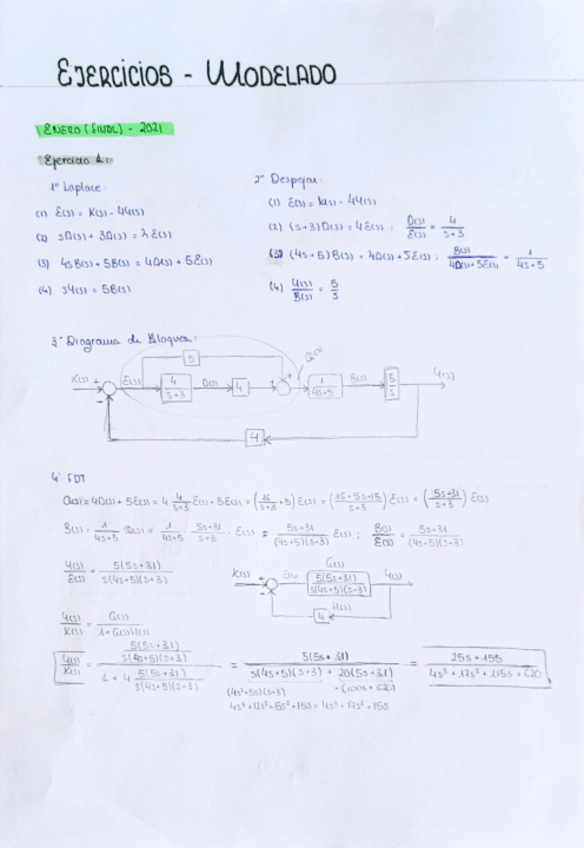 EJERCICIOS - MODELADO
ENERO (FINAL) - 2021
Ejercicio 1:
1º Laplace:
(1) E(s) = X(s) - 4Y(s)
(2) sD(s) + 3D(s) = 4E(s)
(3) 4sB(s) + 5B(s) = 4D(s) + 5E(s)
(4) sY(s) = 5B(s)
2º Despejar:
(1) E(s) = X(s) - 4Y(s)
(2) (s+3)D(s) = 4E(s) ; D(s)/E(s) = 4/s+3
(3) (4s+5)B(s) = 4D(s) + 5E(s) ; B(s)/4D(s)+5E(s) = 1/4s+5
(4) Y(s)/B(s) = 5/s
3º Diagrama de Bloques:
5
Q(s)
X(s) + - E(s) 4/s+3 D(s) 4 + + 1/4s+5 B(s) 5/s Y(s)
4
4º FDT
Q(s) = 4D(s) + 5E(s) = 4 4/s+3 E(s) + 5E(s) = (16/s+3 + 5) E(s) = (16+5s+15/s+3) E(s) = (5s+31/s+3) E(s)
B(s) = 1/4s+5 Q(s) = 1/4s+5 · 5s+31/s+3 · E(s) = 5s+31/(4s+5)(s+3) E(s) ; B(s)/E(s) = 5s+31/(4s+5)(s+3)
Y(s)/E(s) = 5(5s+31)/s(4s+5)(s+3)
G(s)
X(s) + - E(s) 5(5s+31)/s(4s+5)(s+3) Y(s)
4 H(s)
Y(s)/X(s) = G(s)/1+G(s)H(s)
Y(s)/X(s) = 5(5s+31)/s(4s+5)(s+3) / 1 + 4 5(5s+31)/s(4s+5)(s+3) = 5(5s+31)/s(4s+5)(s+3) + 20(5s+31) = 25s+155/4s³+17s²+115s+620
(4s²+5s)(s+3) +(100s+620)
4s³+12s²+5s²+15s = 4s³+17s²+15s